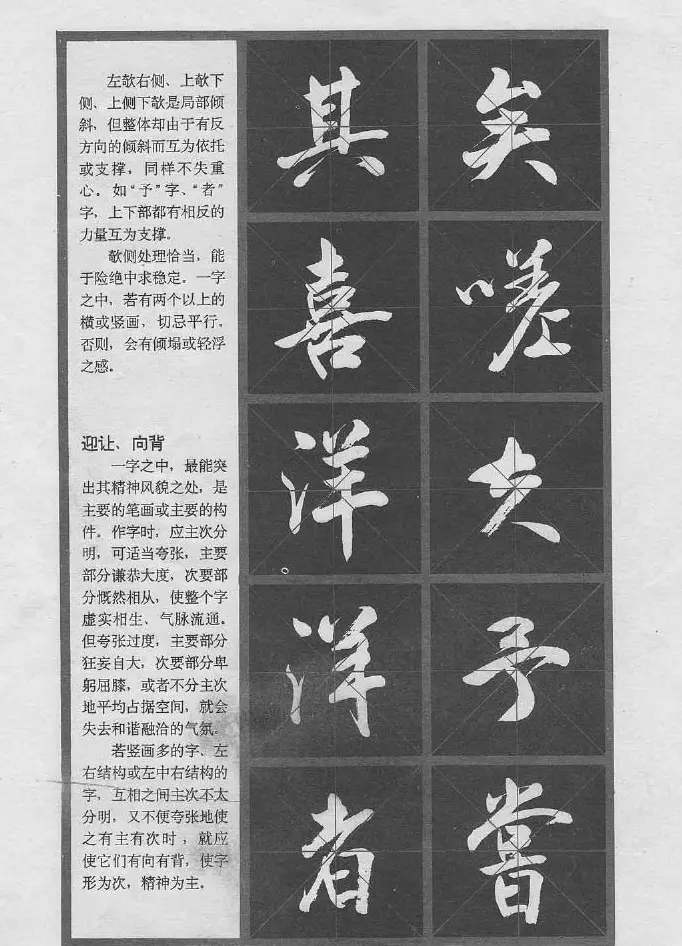 左欹右侧、上欹下
侧、上侧下欹是局部倾
斜，但整体却由于有反
方向的倾斜而互为依托
或支撑，同样不失重
心。如“予”字、“者”
字，上下部都有相反的
力量互为支撑。
欹侧处理恰当，能
于险绝中求稳定。一字
之中，若有两个以上的
横或竖画，切忌平行。
否则，会有倾塌或轻浮
之感。
迎让、向背
一字之中，最能突
出其精神风貌之处，是
主要的笔画或主要的构
件。作字时，应主次分
明，可适当夸张，主要
部分谦恭大度，次要部
分慨然相从，使整个字
虚实相生、气脉流通。
但夸张过度，主要部分
狂妄自大，次要部分卑
躬屈膝，或者不分主次
地平均占据空间，就会
失去和谐融洽的气氛。
若竖画多的字、左
右结构或左中右结构的
字，互相之间主次不太
分明，又不便夸张地使
之有主有次时，就应
使它们有向有背，使字
形为次，精神为主。
其
喜
洋
洋
者
矣
嗟
夫
予
嘗